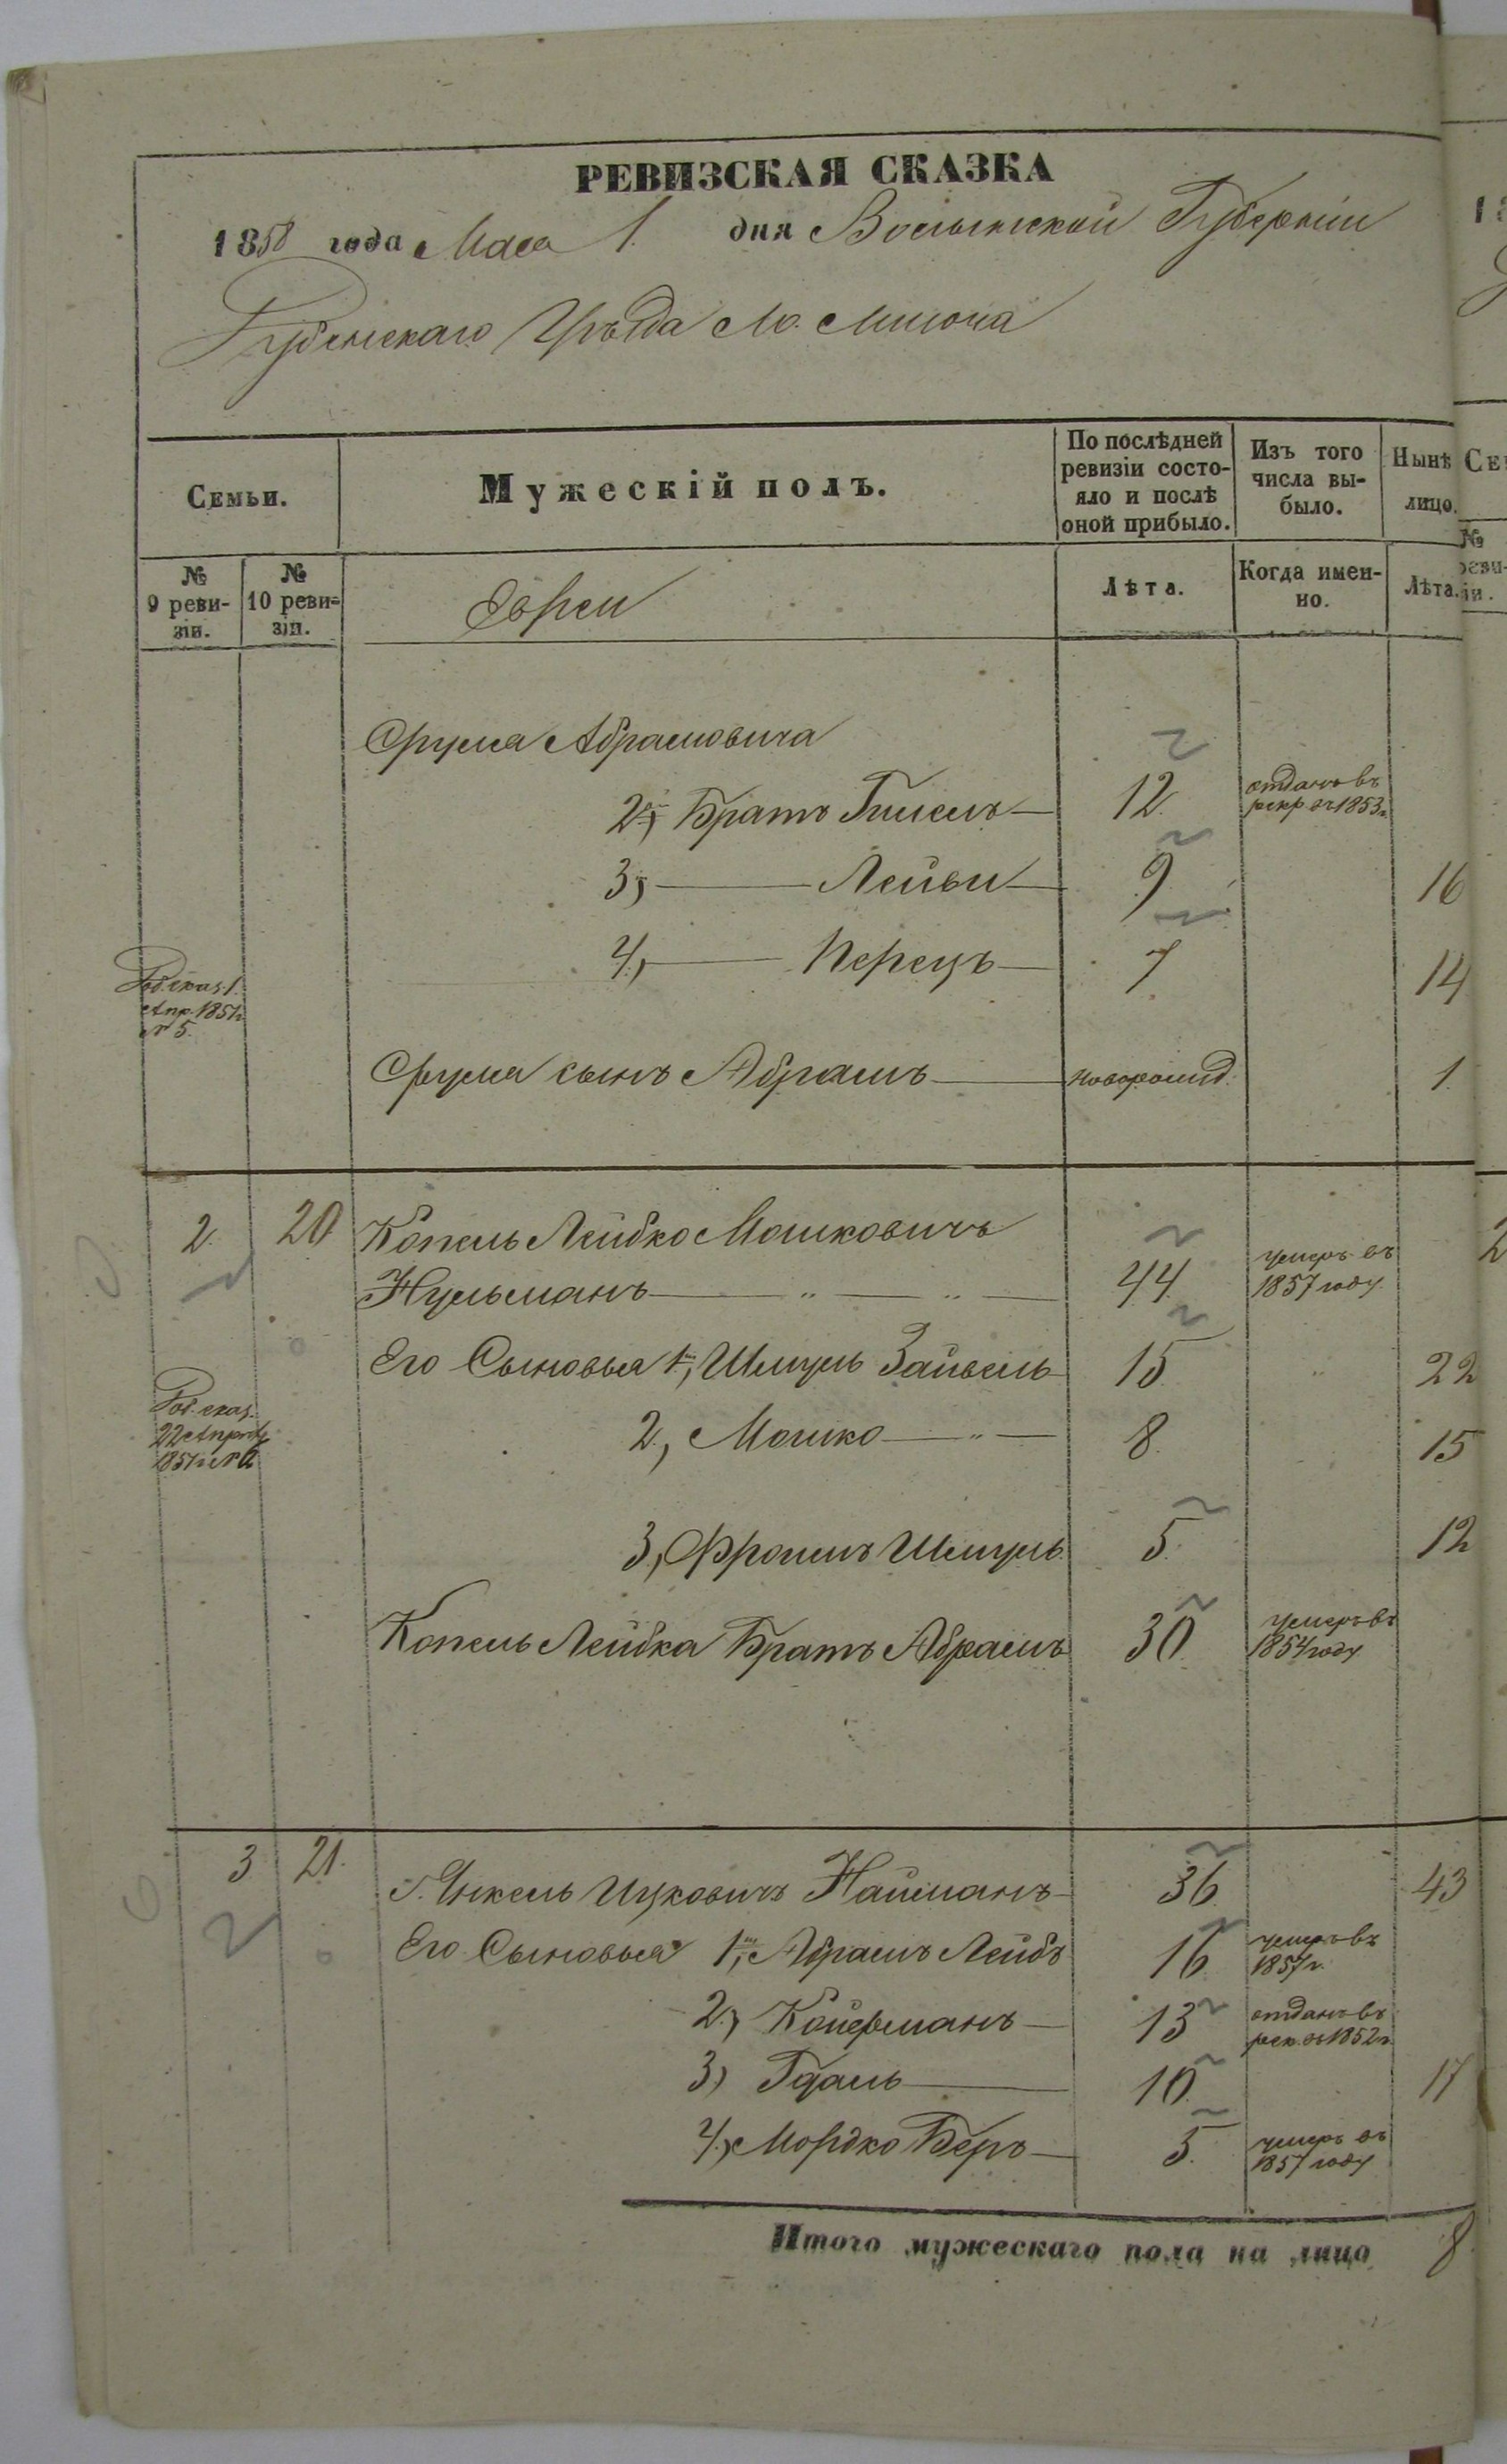 РЕВИЗСКАЯ СКАЗКА
1858 года Мая 1. дня Волынской Губерніи
Уѣзда М.
Семьи.
Мужескій полъ.
По послѣдней ревизіи состо-
яло и послѣ
оной прибыло.
Изъ того
числа вы-
было.
Нынѣ
лицо.
№
9 реви-
зіи.
№
10 реви-
зіи.
Евреи
Лѣта.
Когда имен-
но.
Лѣта.
Срула Абрамовича
2й, Братъ 12. отданъ въ
рекр. въ 1853г.
3, Лейви 9 16
4, Перецъ 7 14
Апр. 1851г.
№ 5.
Срула сынъ Абрамъ новорожд. 1.
2. 20 Копель Лейбко Мошковичъ
Нульманъ 44 умеръ въ
1857 году.
Его Сыновья 1й, Шмуль Зайвель 15 22
22 Апрѣля
1851г.
2, Мошко 8. 15
3, Фроимъ Шмуль 5. 12
Копель Лейбка Братъ Абрамъ 30 умеръ въ
1854 году
3 21. Янкель Ицковичъ Найманъ 36 43
Его Сыновья 1й, Абрамъ Лейбъ 16 умеръ въ
1857г.
2, 13 отданъ въ
рек. въ 1852г.
3) Гдаль 10 17
4, Мордко Беръ 5. умеръ въ
1857 году
Итого мужескаго пола на лицо 8.